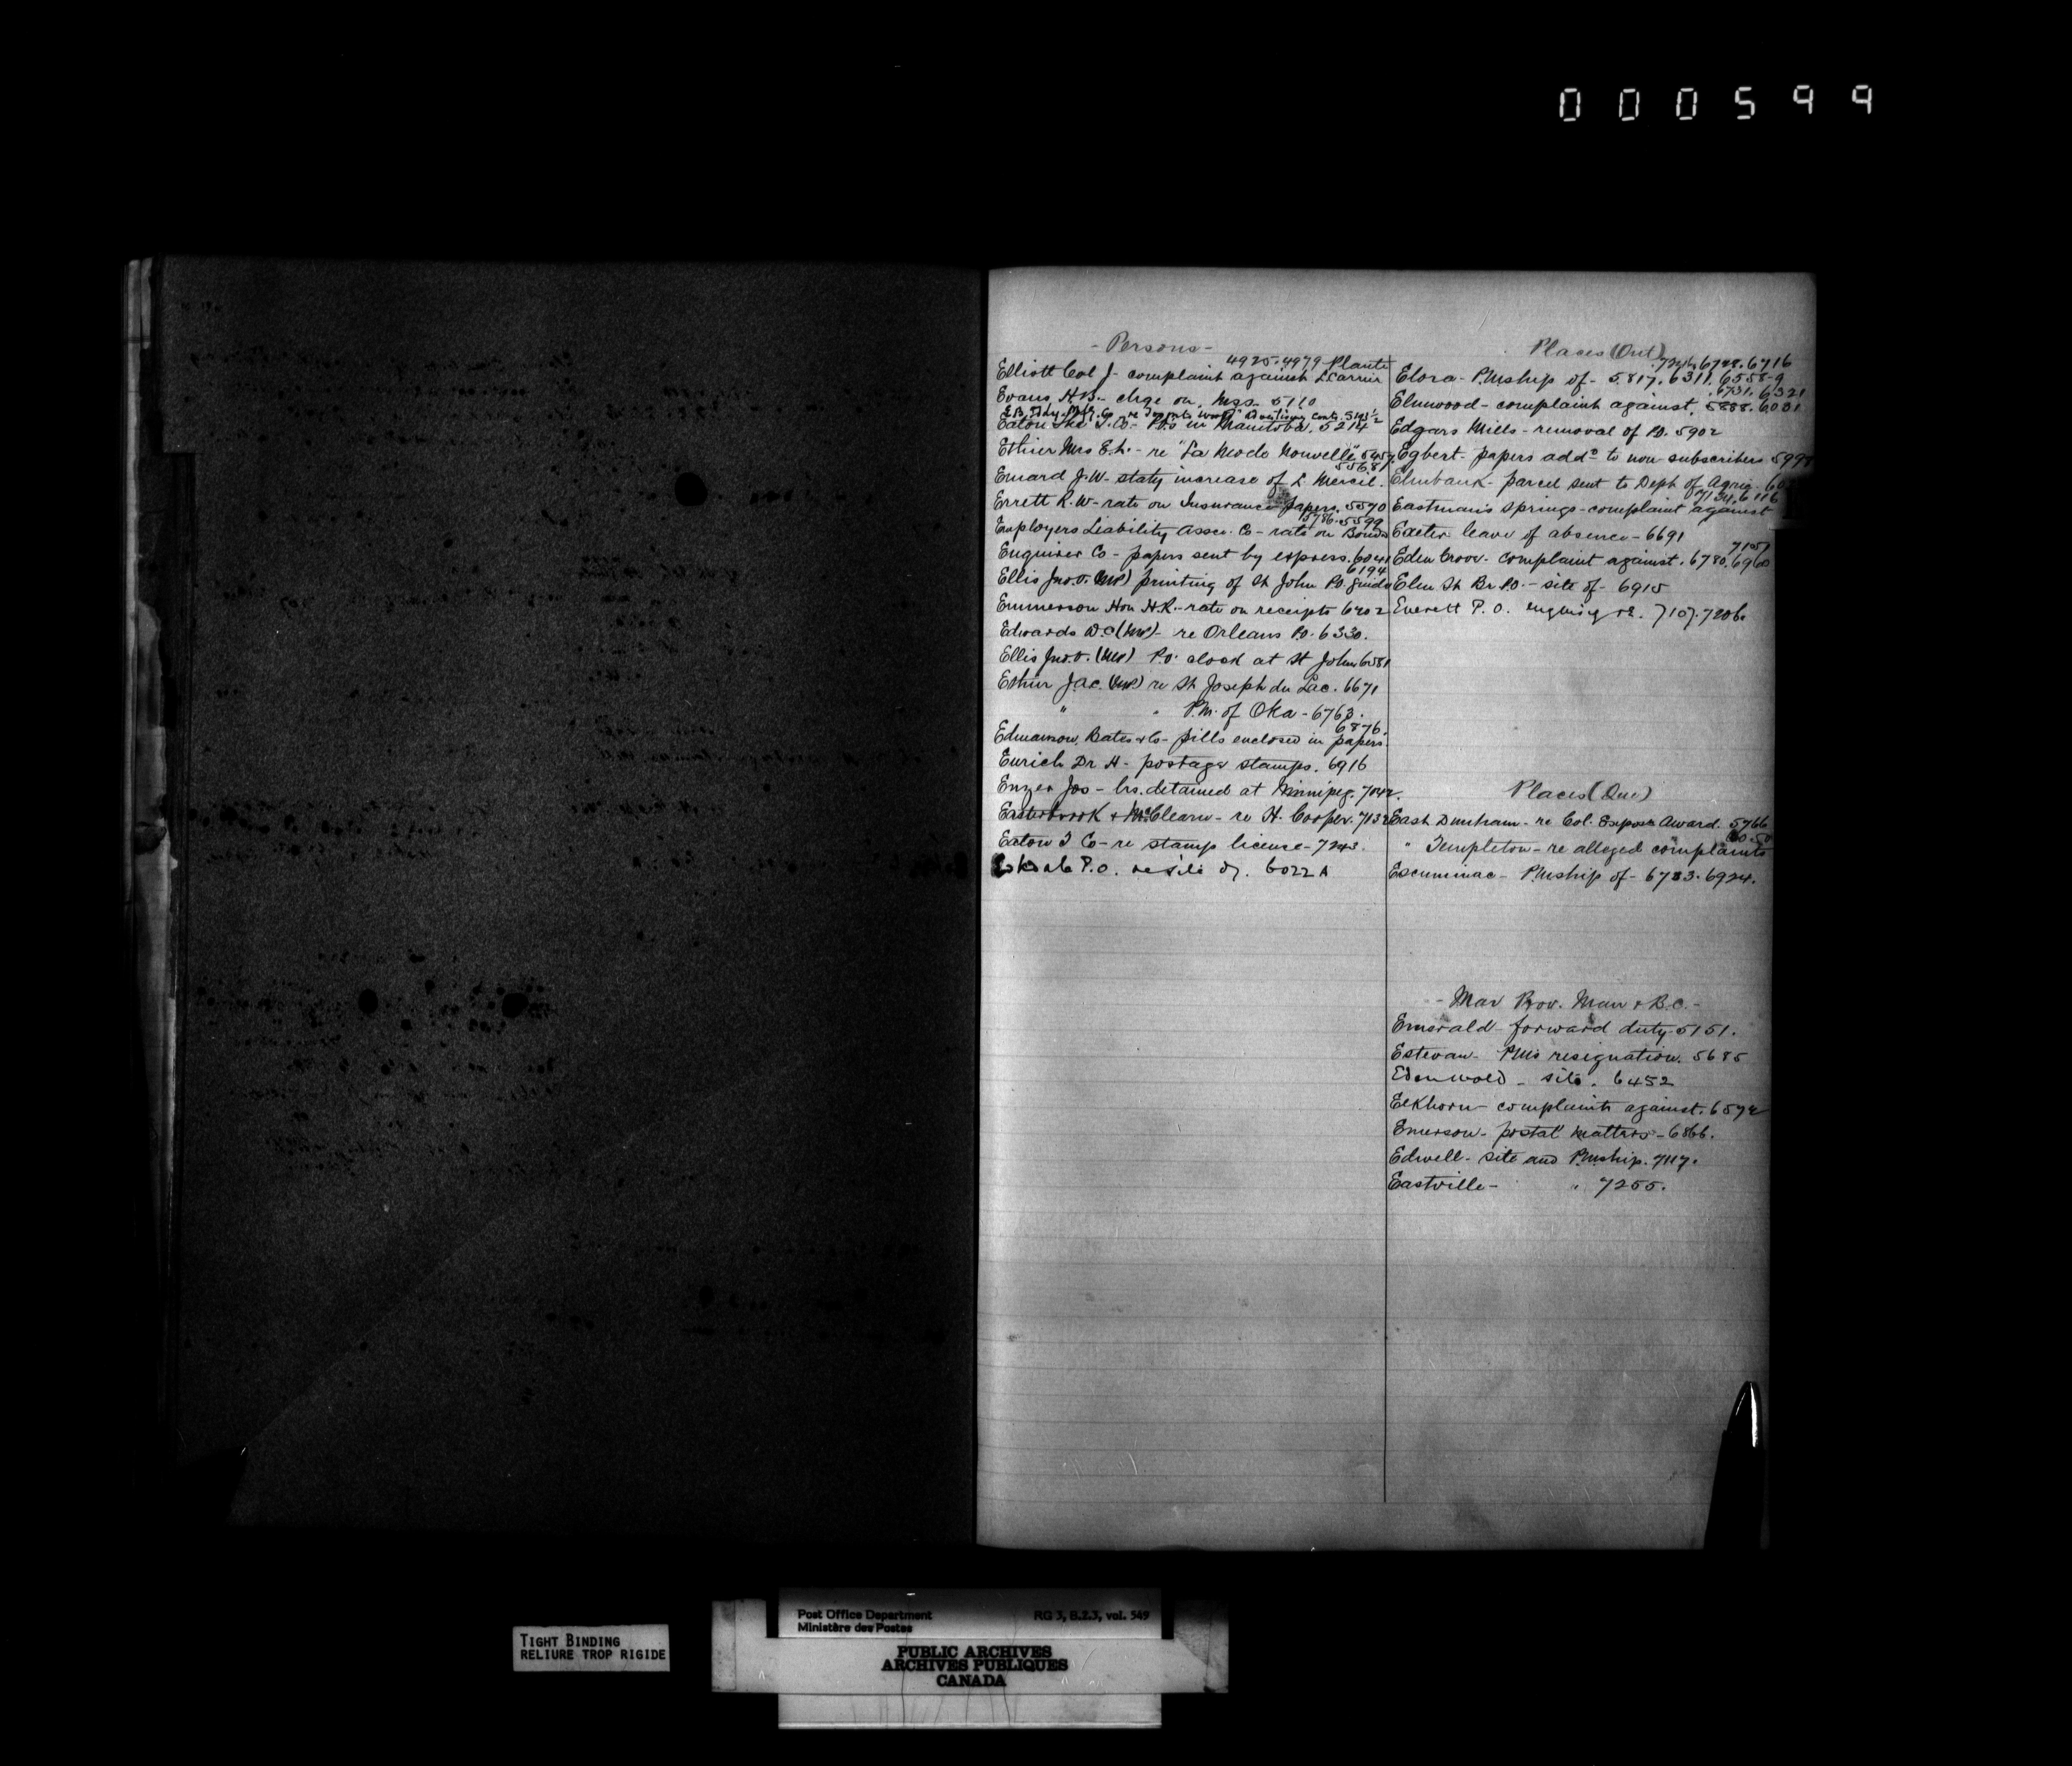 000599
- Persons -
4925. 4979 Plante
Elliott Col J - complaint against L. Carrier
Evans H B. - chge on Mss. 5110
E B Eddy Mfg Co re
Eaton The T. Co. - P.Os in Manitoba. 5214
Ethier Mrs E. L. - re "La Mode Nouvelle" 5457
5568
Emard J. W - staty increase of L. Mercil.
Errett R. W - rate on Insurance papers. 5570
5786. 5599
Employers Liability Assce. Co - rate on Bonds
Enquirer Co - papers sent by express. 6041
6194
Ellis Jno. V. (MP) printing of St John P.O. Guide
Emmerson Hon H. R. - rate on receipts 6202
Edwards W. C (MP) - re Orleans P.O. 6330.
Ellis Jno. V. (MP) P.O. clock at St John 6581
Ethier J. A. C. (MP) re St Joseph du Lac. 6671
" " P.M. of Oka - 6763.
6876.
Edmanson, Bates & Co - pills enclosed in papers.
Emrich Dr H - postage stamps. 6916
Enzer Jos - lrs. detained at Winnipeg. 7042.
Easterbrook & McClearn - re H. Cooper. 7132
Eaton T Co - re stamp license - 7243.
P.O. re site of. 6022 A
Places (Ont)
7246. 6748. 6716
Elora - P.Mship of - 5817. 6311. 6558-9
6731. 6321
Elmwood - complaint against. 5888. 6031
Edgars Mills - removal of P.O. 5902
Egbert - papers addd to non-subscribers 599
Elmbank - parcel sent to Dept of Agric. 60
7134. 6116
Eastman's Springs - complaint against
Exeter leave of absence - 6691
7151
Eden Grove - complaint against. 6780. 6960
Elm St Br. P.O. - site of - 6915
Everett P. O. enquiry re. 7107. 7206.
Places (Que)
East Dunham - re Col. Expos Award. 5766
60.50
" Templeton - re alleged complaints
Escuminac - P.Mship of - 6783. 6924.
- Mar Prov. Man & B.C. -
Emerald - forward duty 5151.
Estevan - PM's resignation. 5685
Edenwold - site. 6452
Elkhorn - complaints against. 6592
Emerson - postal matters - 6866.
Edwell - site and P.Mship. 7117.
Eastville - " 7255.
TIGHT BINDING
RELIURE TROP RIGIDE
Post Office Department RG 3, B.2.3, vol. 549
Ministère des Postes
PUBLIC ARCHIVES
ARCHIVES PUBLIQUES
CANADA